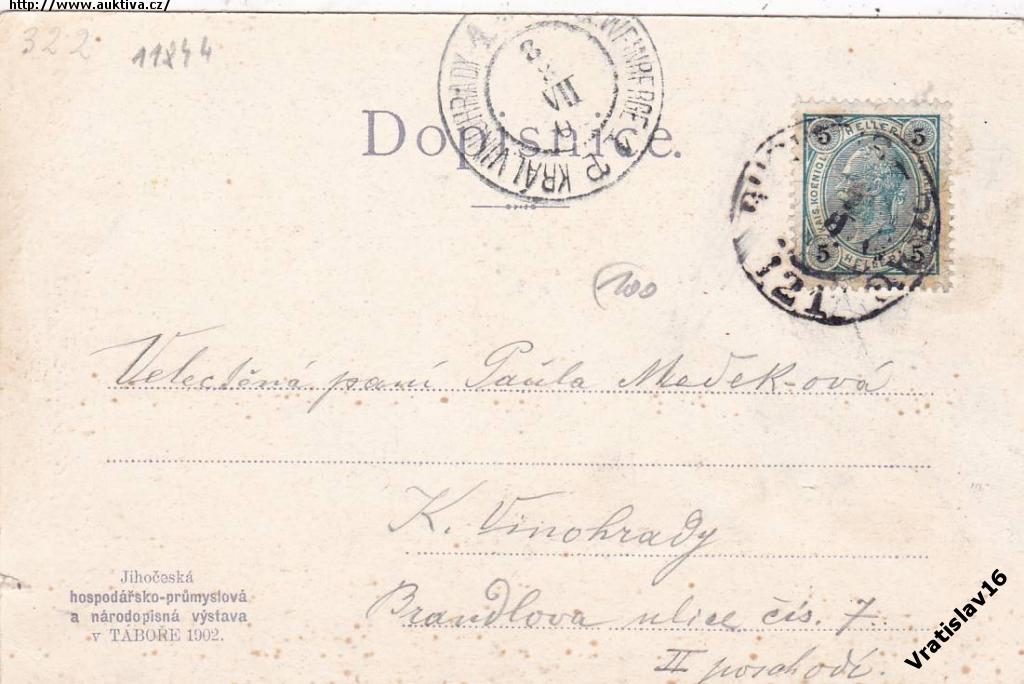 http://www.auktiva.cz/
322
11844
KRÁL. VINOHRADY 1
VII
Dopisnice.
5 HELLER 5
KAIS. KOENIGL.
5 HELLER 5
100
Velectěná paní Paúla Medek-ová
K. Vinohrady
Brandlova ulice čís. 7.
II poschodí.
Jihočeská
hospodářsko-průmyslová
a národopisná výstava
v TÁBOŘE 1902.
Vratislav16